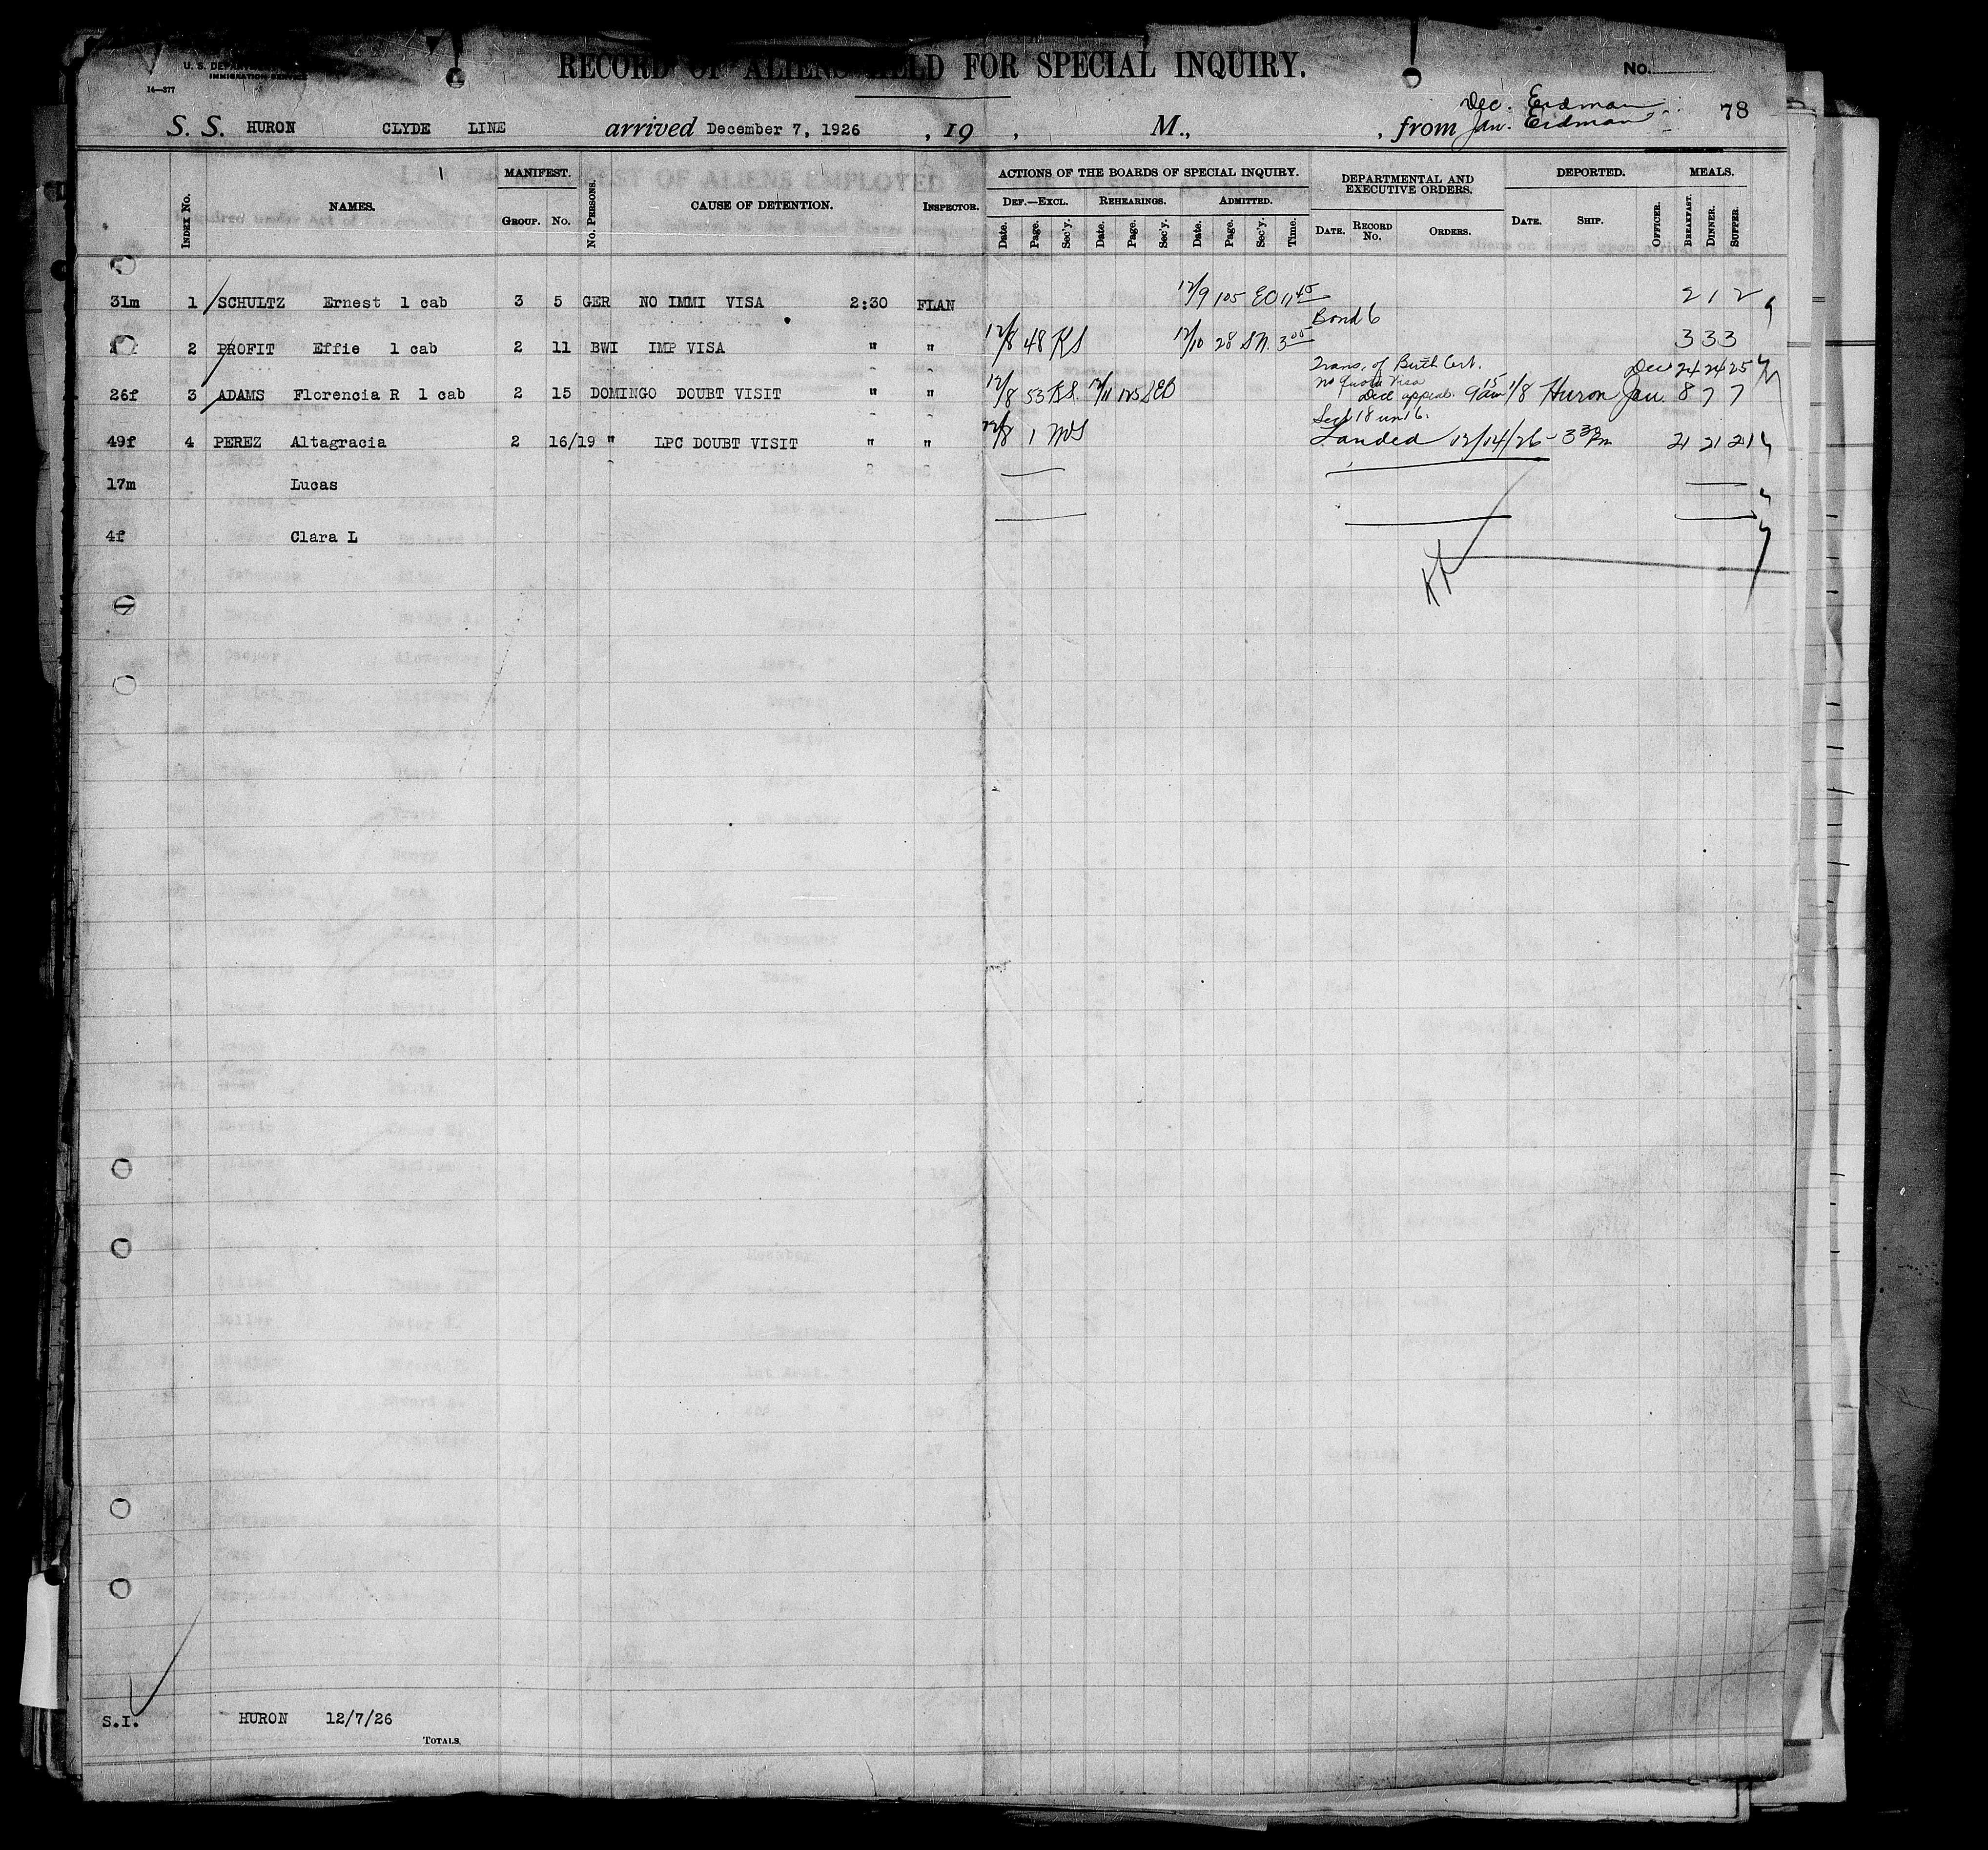 U. S. DEPARTMENT
IMMIGRATION SERVICE
14—377
RECORD OF ALIENS HELD FOR SPECIAL INQUIRY.
No.
Dec. Eidman
78
S. S. HURON CLYDE LINE arrived December 7, 1926 , 19 , M., , from Jan. Eidman
INDEX No. NAMES. MANIFEST. GROUP. No. No. PERSONS. CAUSE OF DETENTION. INSPECTOR. ACTIONS OF THE BOARDS OF SPECIAL INQUIRY. DEF.—EXCL. Date. Page. Sec'y. REHEARINGS. Date. Page. Sec'y. ADMITTED. Date. Page. Sec'y. Time. DEPARTMENTAL AND EXECUTIVE ORDERS. DATE. RECORD No. ORDERS. DEPORTED. DATE. SHIP. OFFICER. MEALS. BREAKFAST. DINNER. SUPPER.
31m 1 SCHULTZ Ernest 1 cab 3 5 GER NO IMMI VISA 2:30 FLAN 12/9 105 EO 11 45 2 1 2
Bond 6
2 PROFIT Effie 1 cab 2 11 BWI IMP VISA " " 12/8 48 RS 12/10 28 SN. 3 00 3 3 3
Trans. of Birth Cert. Dec 24 24 25
no quota visa
26f 3 ADAMS Florencia R 1 cab 2 15 DOMINGO DOUBT VISIT " " 12/8 53 RS. 12/11 125 SEB Dec appeal. 9 15 am 1/8 Huron Jan. 8 7 7
Sect 18 un 16.
49f 4 PEREZ Altagracia 2 16/19 " LPC DOUBT VISIT " " 12/8 1 MS Landed 12/14/26 - 3 30 Pm 21 21 21
17m Lucas
4f Clara L
S.I. HURON 12/7/26
TOTALS,